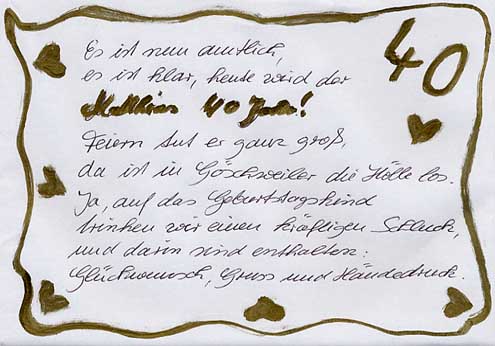 40
Es ist nun amtlich,
es ist klar, heute wird der
Mathias 40 Jahr!
Feiern tut er ganz groß,
da ist in Göschweiler die Hölle los.
Ja, auf das Geburtstagskind
trinken wir einen kräftigen Schluck,
und darin sind enthalten:
Glückwunsch, Gruss und Händedruck.